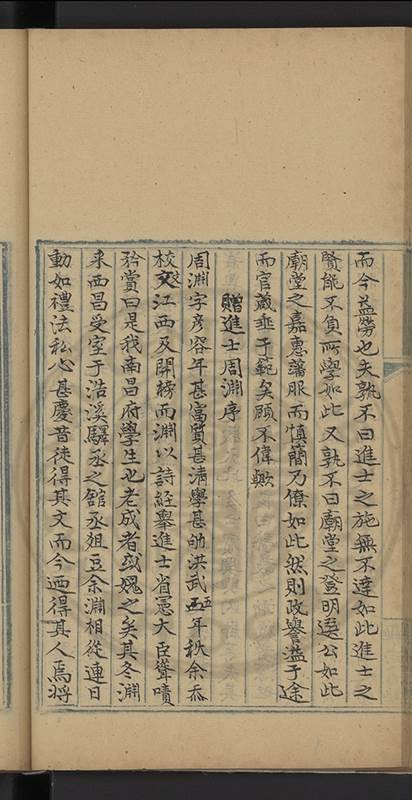 而今益勞也夫孰不曰進士之施無不達如此進士之
賢能不負所學如此又孰不曰廟堂之登明選公如此
廟堂之嘉惠藩服而慎簡乃僚如此然則政譽溢于途
而官箴垂于範矣顧不偉歟
贈進士周淵序
周淵字彥容年甚富質甚清學甚的洪武五年秋余忝
校文江西及開榜而淵以詩經舉進士省憲大臣聳嘖
矜賞曰是我南昌府學生也老成者或媿之矣其冬淵
來西昌受室于浩溪驛丞之館丞俎豆余淵相從連日
動如禮法私心甚慶昔徒得其文而今迺得其人焉將